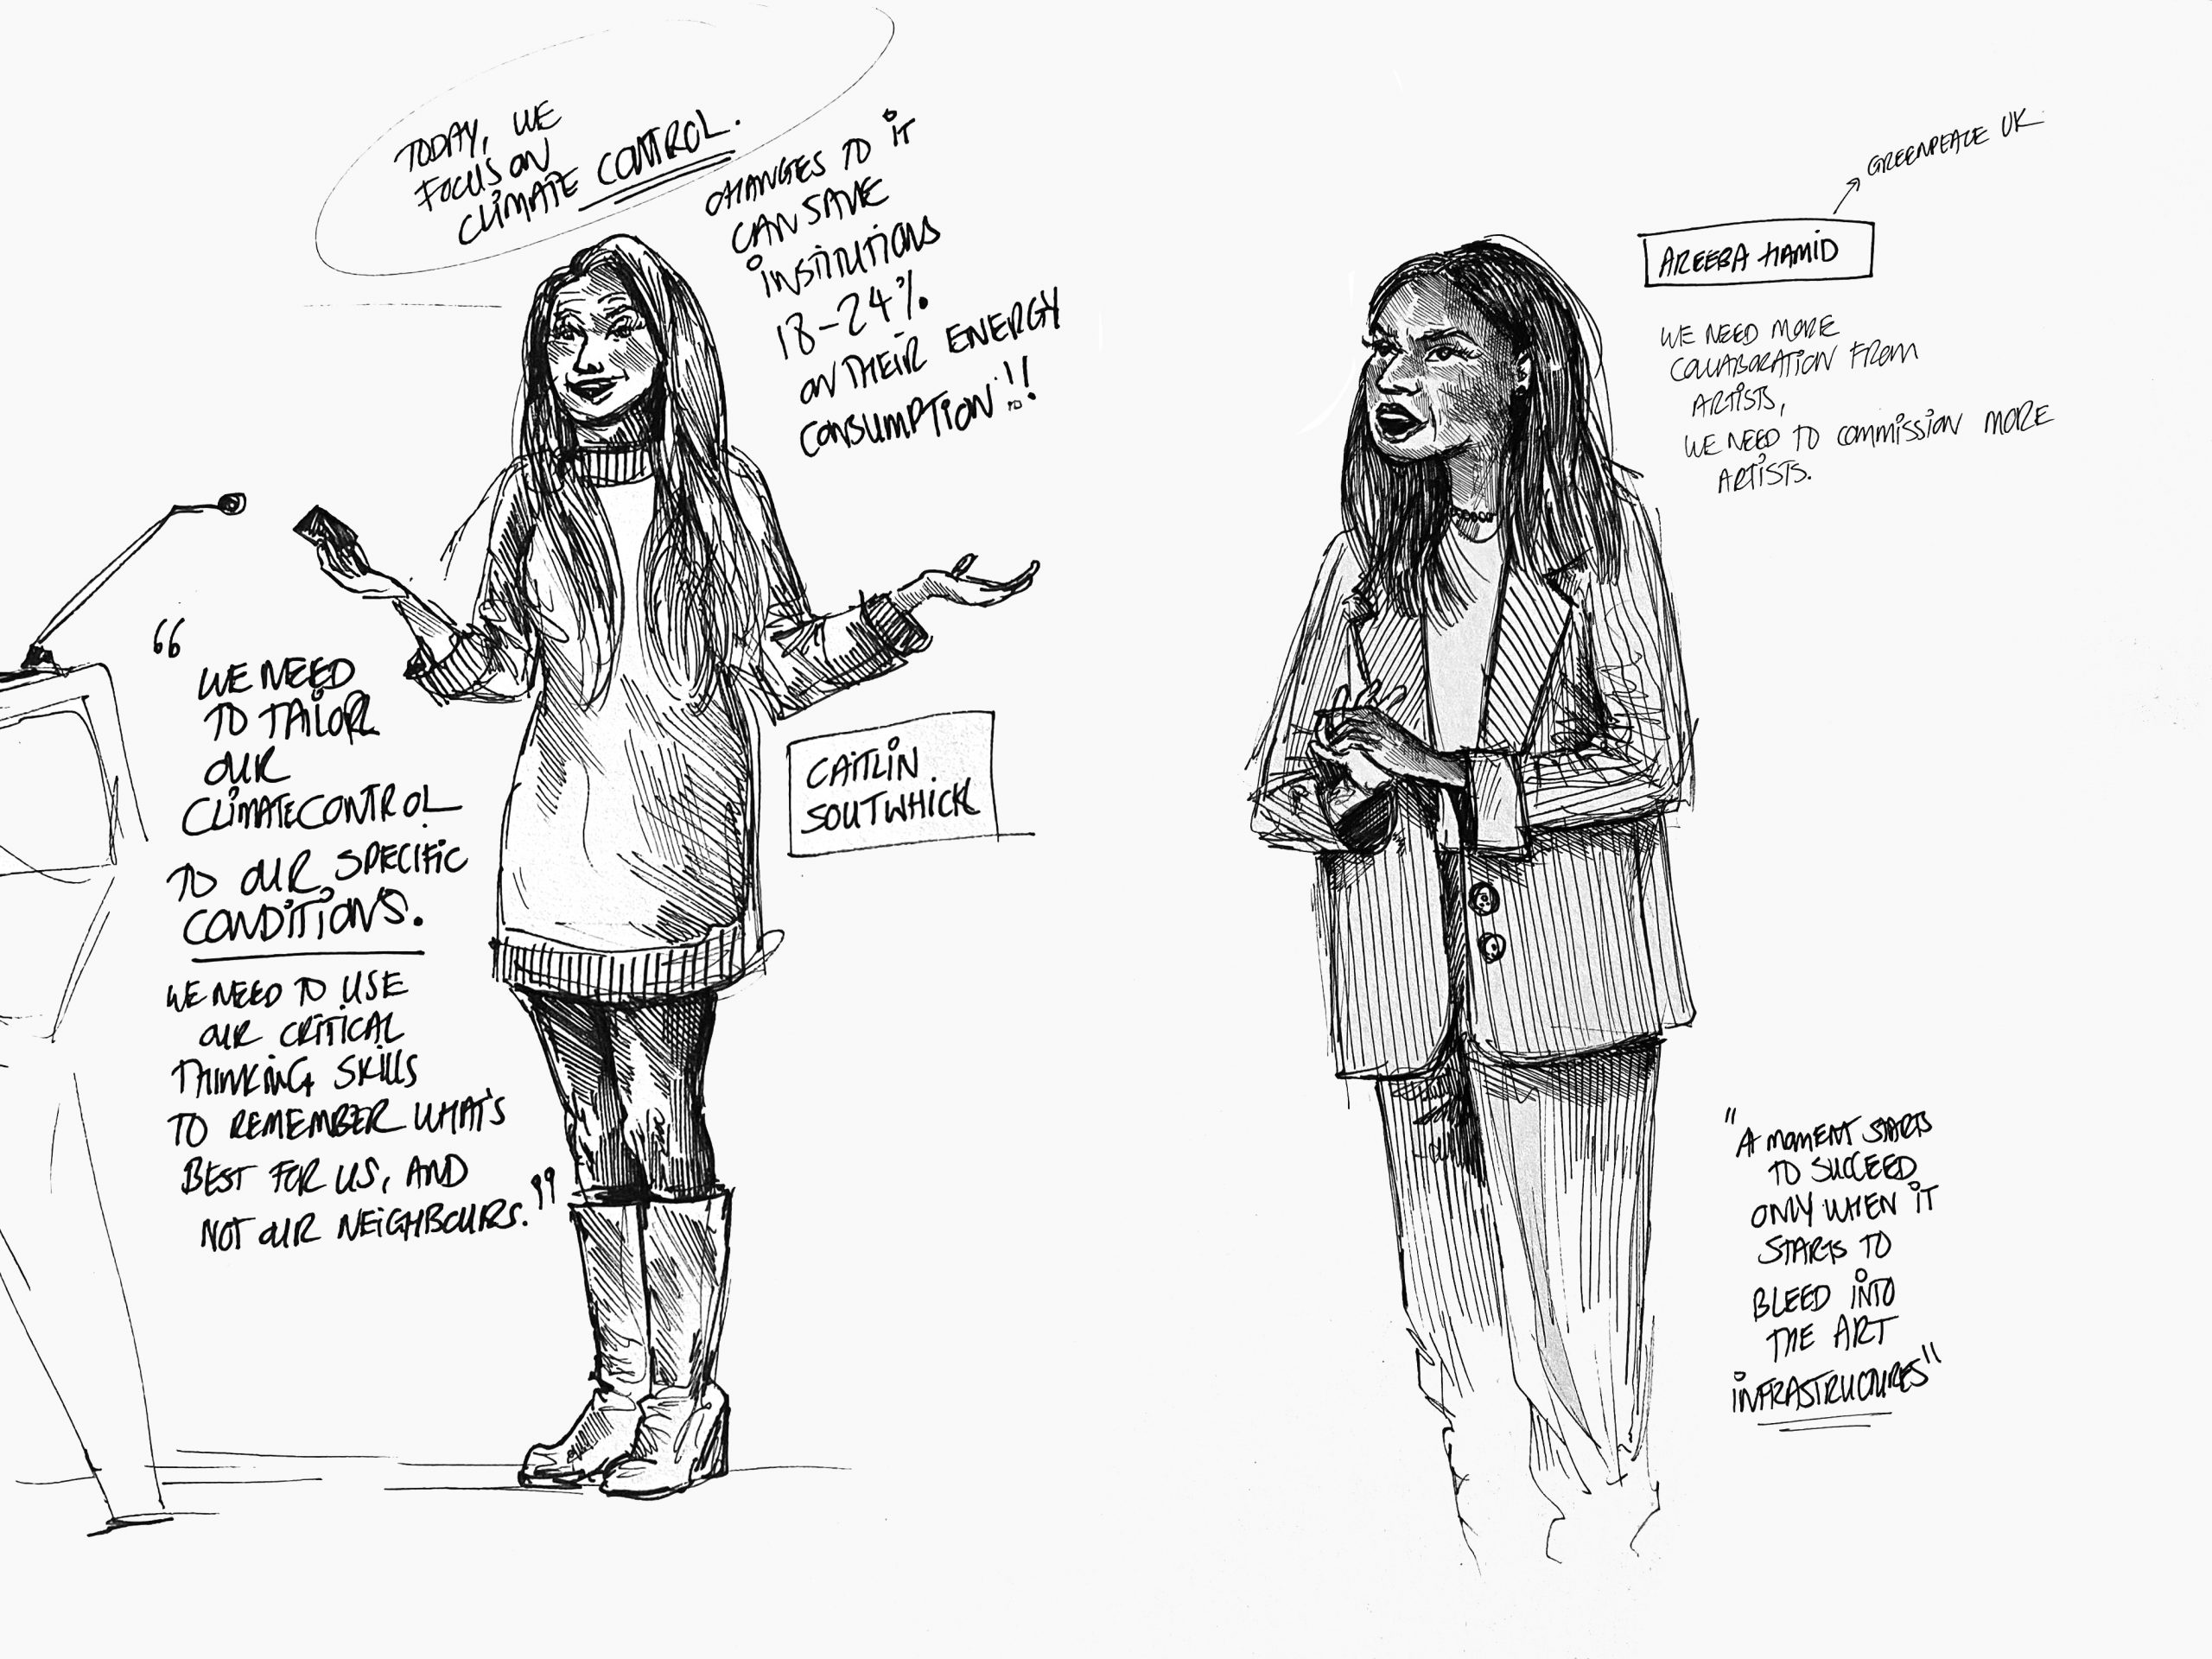 TODAY, WE
FOCUS ON
CLIMATE CONTROL.
CHANGES TO IT
CAN SAVE
INSTITUTIONS
18-24%
ON THEIR ENERGY
CONSUMPTION!!
“
WE NEED
TO TAILOR
OUR
CLIMATECONTROL
TO OUR SPECIFIC
CONDITIONS.
WE NEED TO USE
OUR CRITICAL
THINKING SKILLS
TO REMEMBER WHAT'S
BEST FOR US, AND
NOT OUR NEIGHBOURS.”
CAITLIN
SOUTWHICK
GREENPEACE UK
AREEBA HAMID
WE NEED MORE
COLLABORATION FROM
ARTISTS,
WE NEED TO COMMISSION MORE
ARTISTS.
"A MOMENT STARTS
TO SUCCEED
ONLY WHEN IT
STARTS TO
BLEED INTO
THE ART
INFRASTRUCTURES"